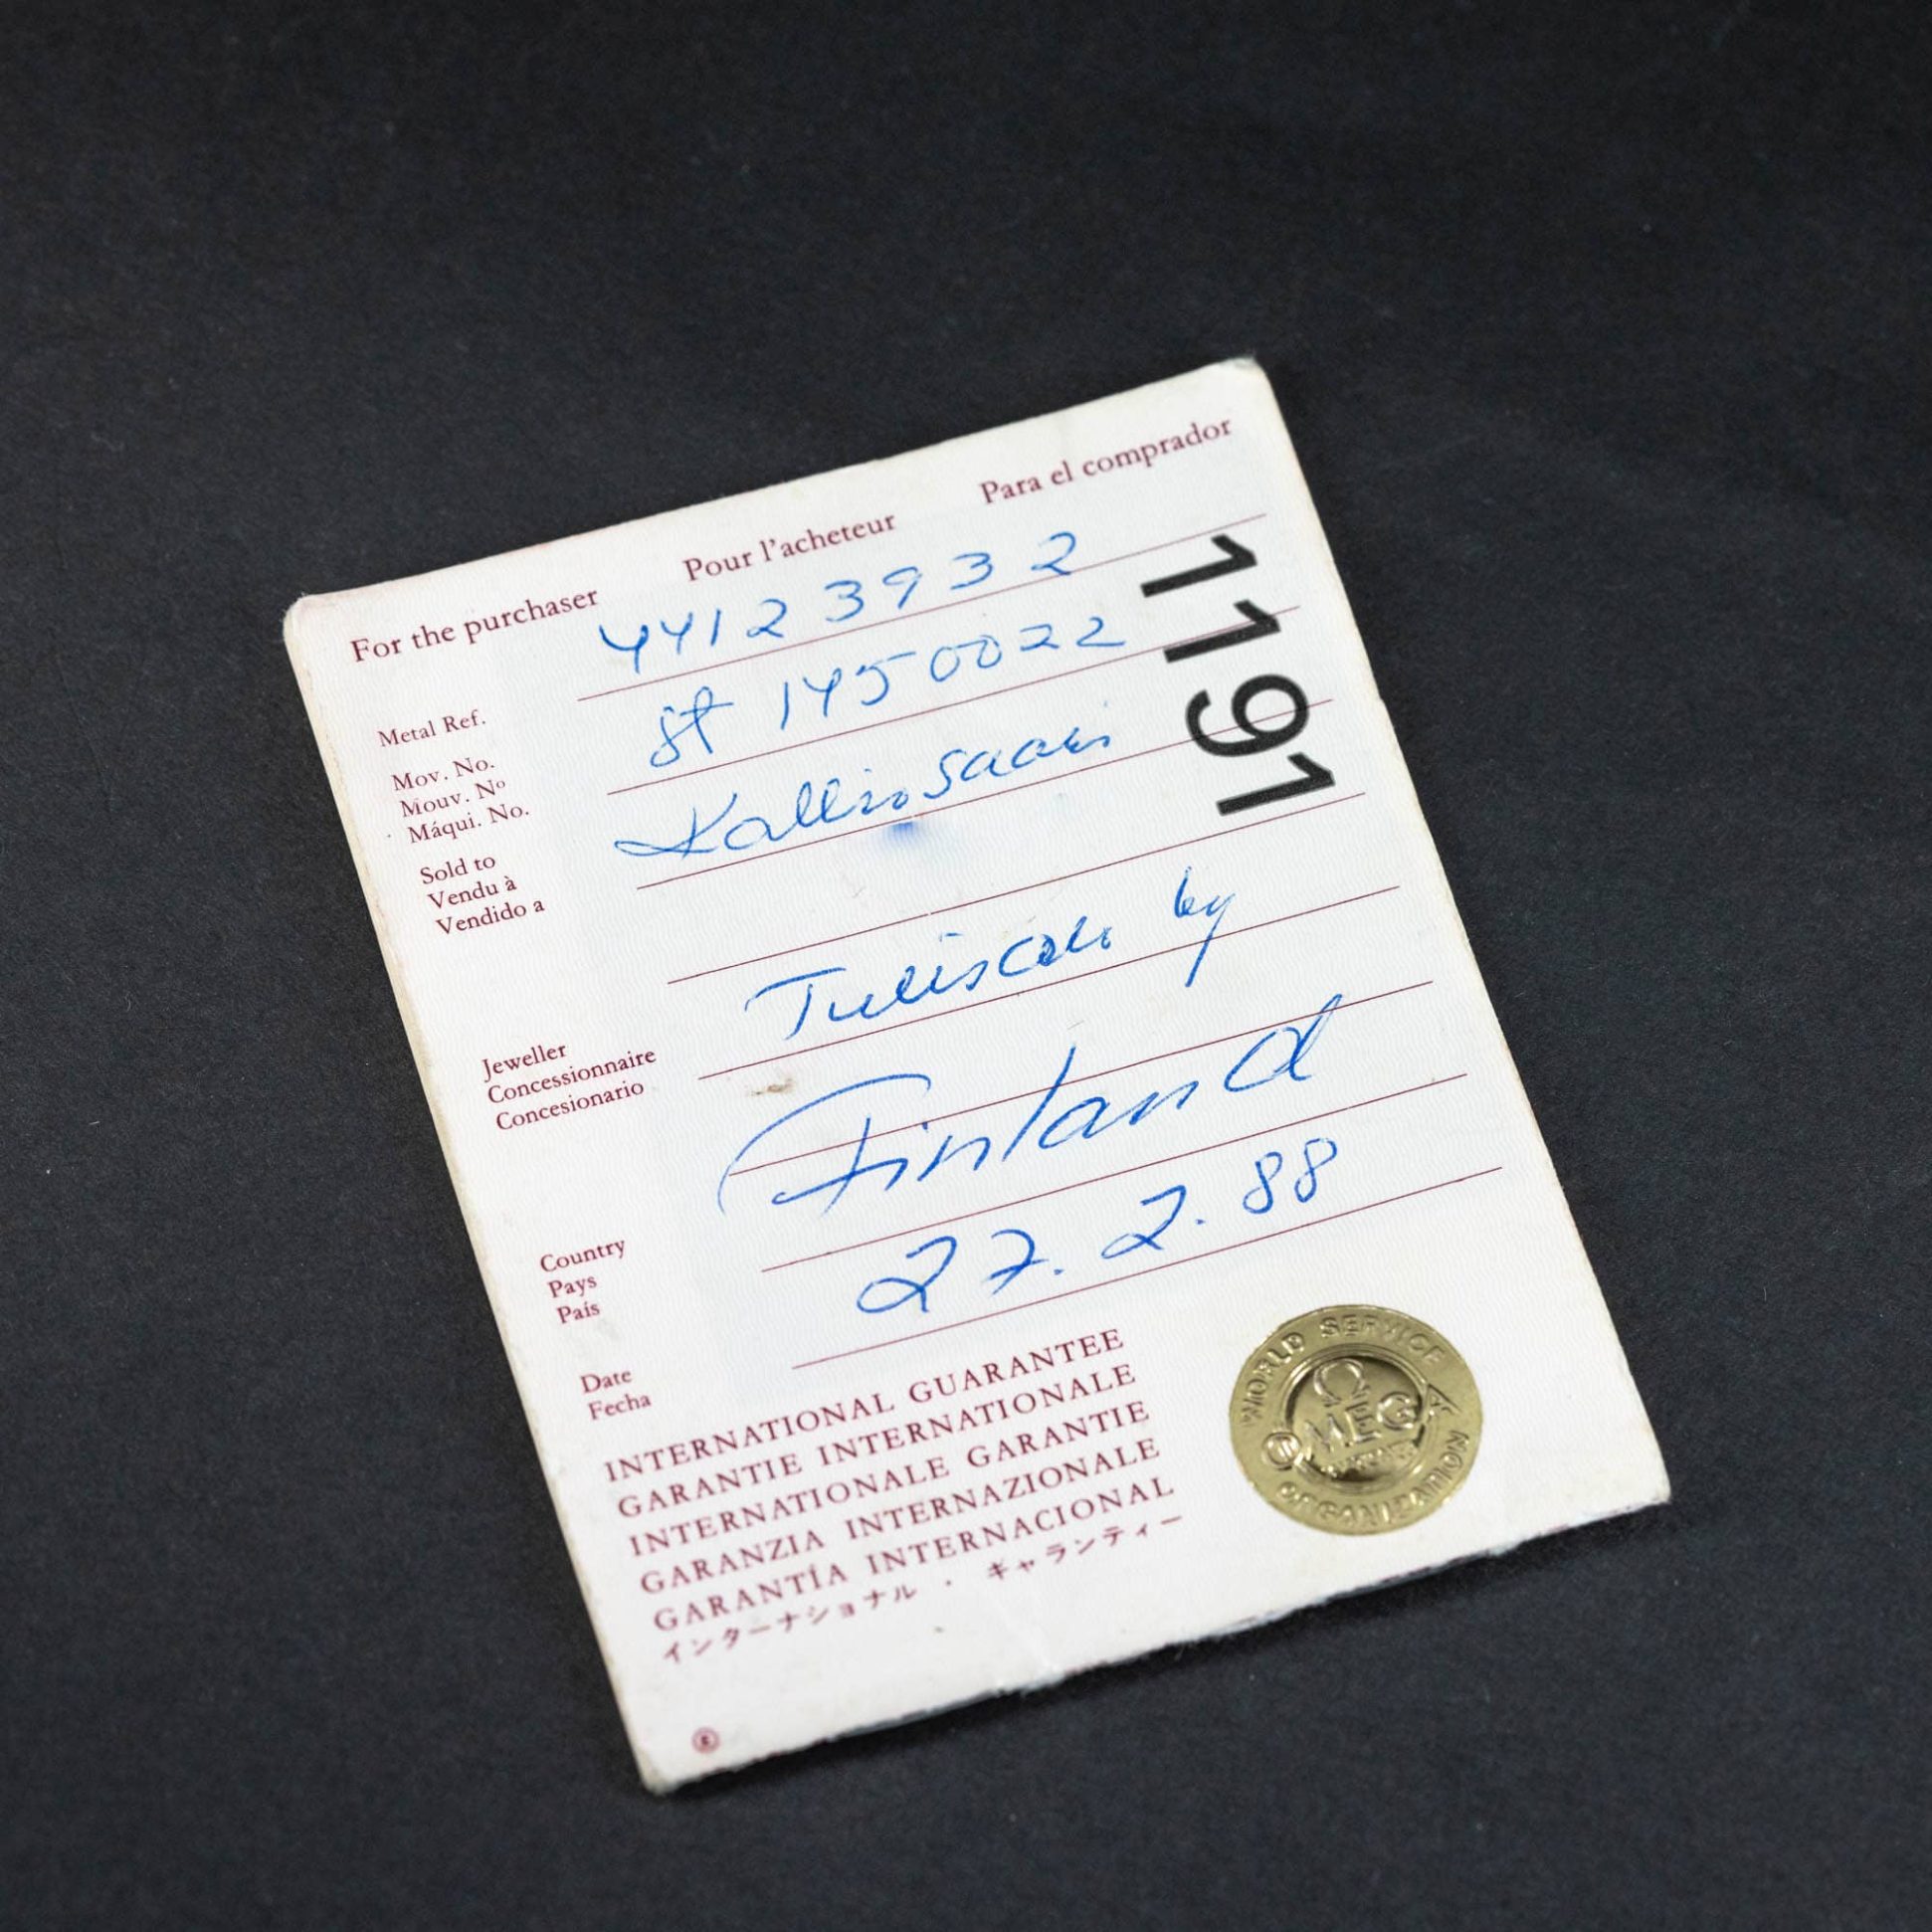 For the purchaser Pour l'acheteur Para el comprador
44123932
Metal Ref. st 1450022
Mov. No.
Mouv. Nº
Máqui. No.
Kalliosaari
Sold to
Vendu à
Vendido a
1191
by
Jeweller
Concessionnaire
Concesionario
Finland
Country
Pays
País
27.2.88
Date
Fecha
INTERNATIONAL GUARANTEE
GARANTIE INTERNATIONALE
INTERNATIONALE GARANTIE
GARANZIA INTERNAZIONALE
GARANTÍA INTERNACIONAL
インターナショナル・ギャランティー
WORLD SERVICE
Ω
OMEGA
ORGANIZATION